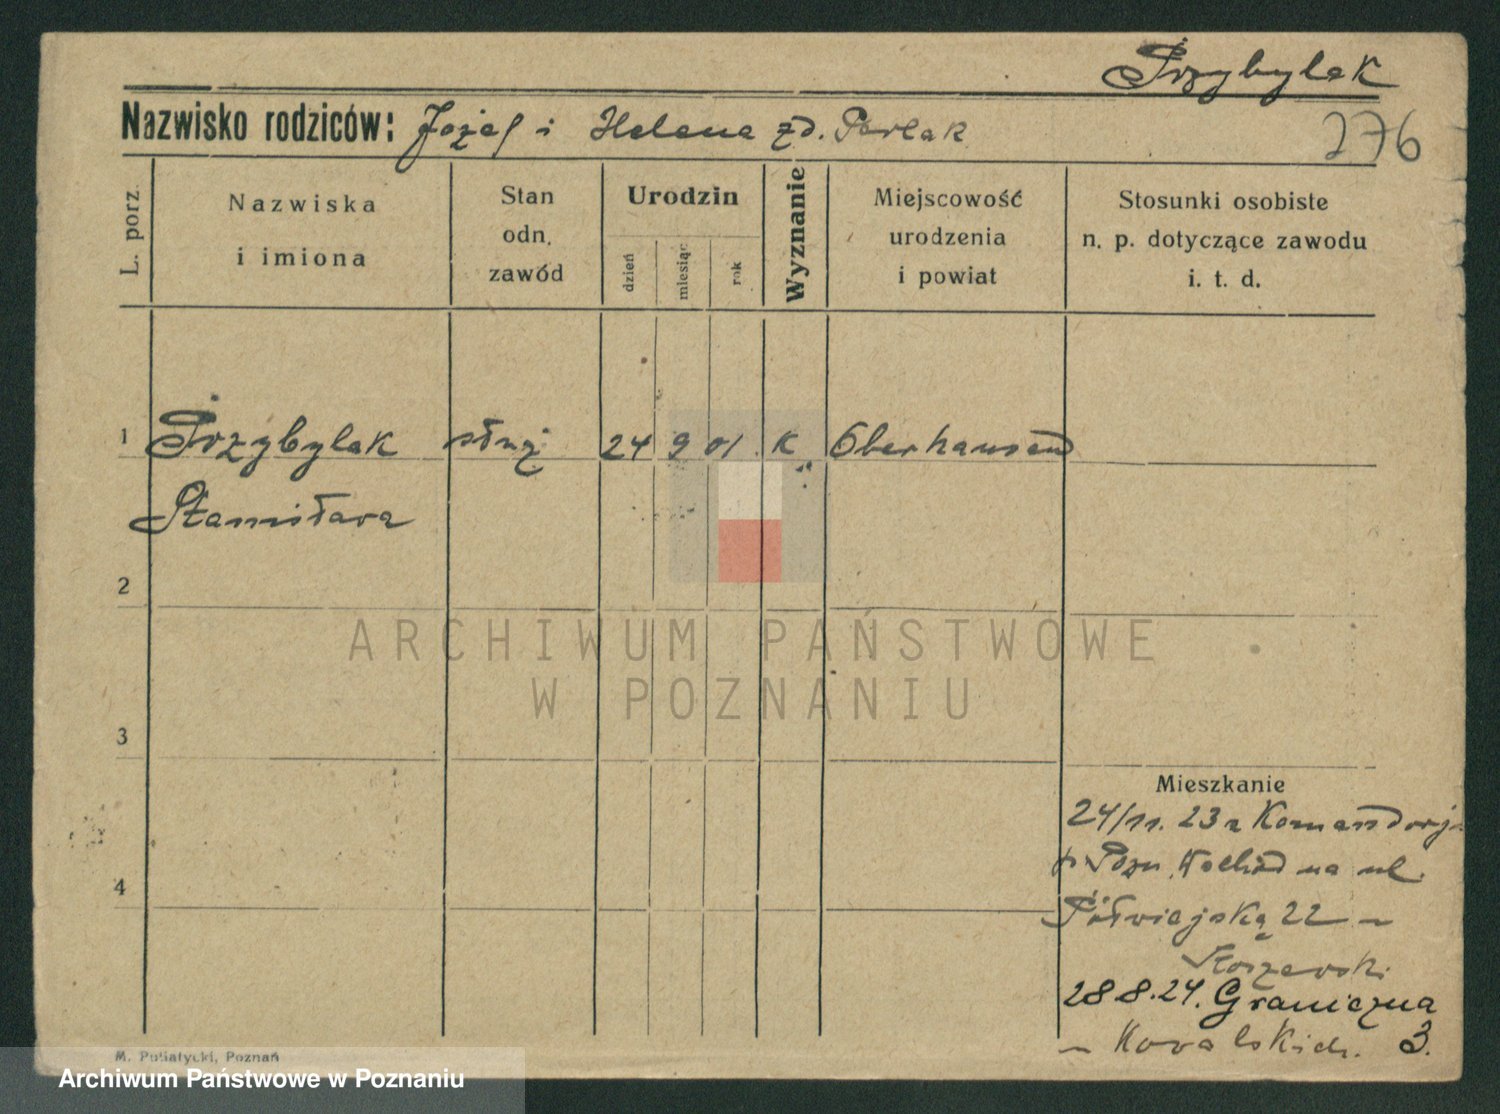 Przybylak
Nazwisko rodziców: Józef i Helena zd. Perlak
276
L. porz.
Nazwiska
i imiona
Stan
odn.
zawód
Urodzin
dzień
miesiąc
rok
Wyznanie
Miejscowość
urodzenia
i powiat
Stosunki osobiste
n. p. dotyczące zawodu
i. t. d.
1 Przybylak służ 24 9 01 K Oberhausen
Stanisława
2
ARCHIWUM PAŃSTWOWE
W POZNANIU
3
Mieszkanie
24/11. 23 z Komandorj
p Pozn. Wschód na ul.
4
Półwiejską 22 –
28.8.24. Graniczna
– Kowalskich. 3.
M. Putiatycki, Poznań
Archiwum Państwowe w Poznaniu